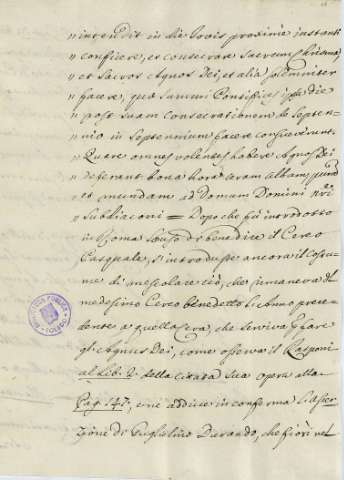 " intendit in die Jovis proxime instanti
" conficere, et consecrare Sacrum Chrisma,
" et Sacros Agnos Dei, et alia solemniter
" facere, quæ Summi Pontifices ipsa die
" post suam consecrationem de Septen-
" nio in Septennium facere consueverunt.
" Quare omnes volentes habere Agnos Dei
" deferant bona hora ceram albam, pund
" et mundam ad Domum Domini nři
" Subdiaconi = Dopo che fù introdotto
in Roma l'uso di benedire il Cereo
Pasquale, s'introdusse ancora il Costu-
me di mescolare ciò, che rimaneva del
medesimo Cereo benedetto l'Anno prece-
dente a quella Cera, che serviva p fare
gl'Agnus Dei, come osserva il Rasponi
al Lib. 2. della citata sua opera alla
Pag. 147, ove adduce in conferma l'Asser-
zione di Guglielmo Durando, che fiorì nel
BIBLIOTECA PUBLICA
TOLEDO